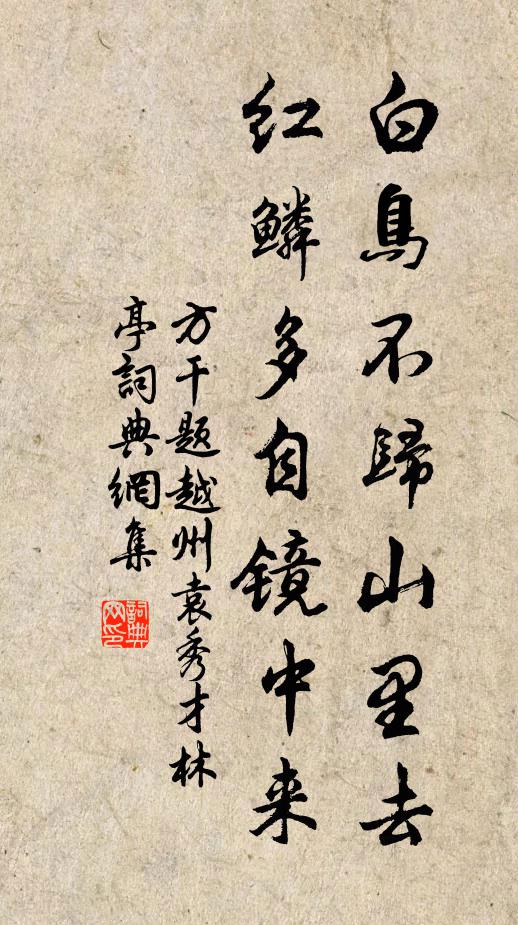 白鳥不歸山里去
红鳞多自镜中来
方干题越州袁秀才林
亭詞典網集
詞典
网印